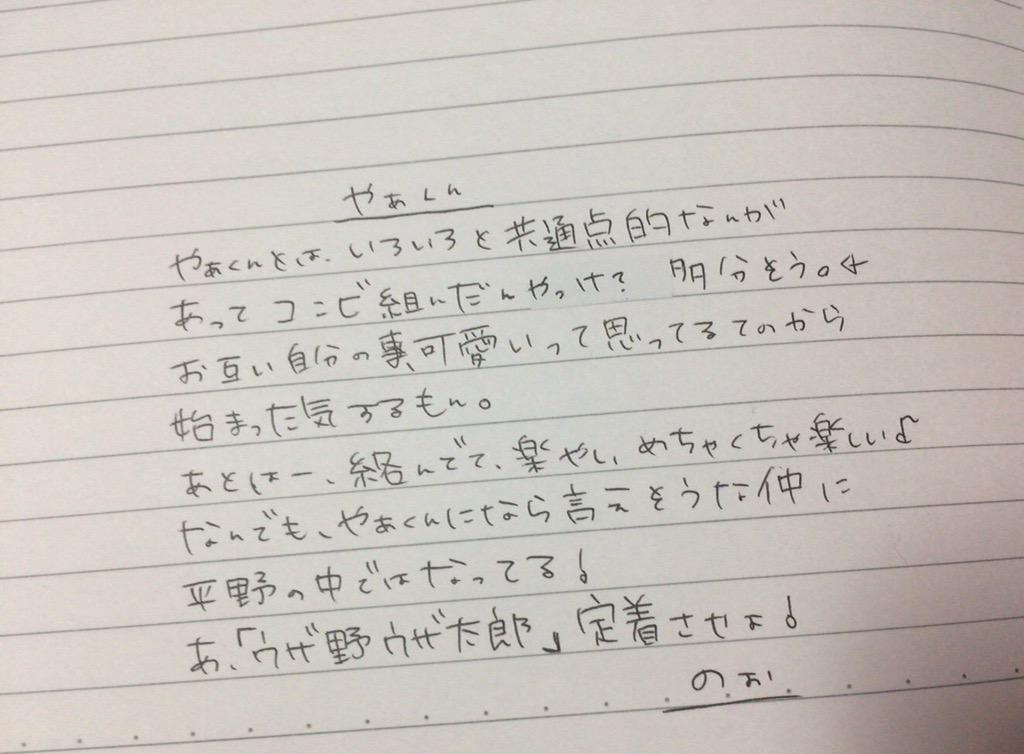 やぁくん
やぁくんとは、いろいろと共通点的なんが
あってコンビ組んだんやっけ? 多分そう。←
お互い自分の事可愛いって思ってるてのから
始まった気するもん。
あとはー、絡んでて、楽やし、めちゃくちゃ楽しい♪
なんでも、やぁくんになら言えそうな仲に
平野の中ではなってる!
あ、「ウザ野ウザ太郎」定着させよ!
のあ